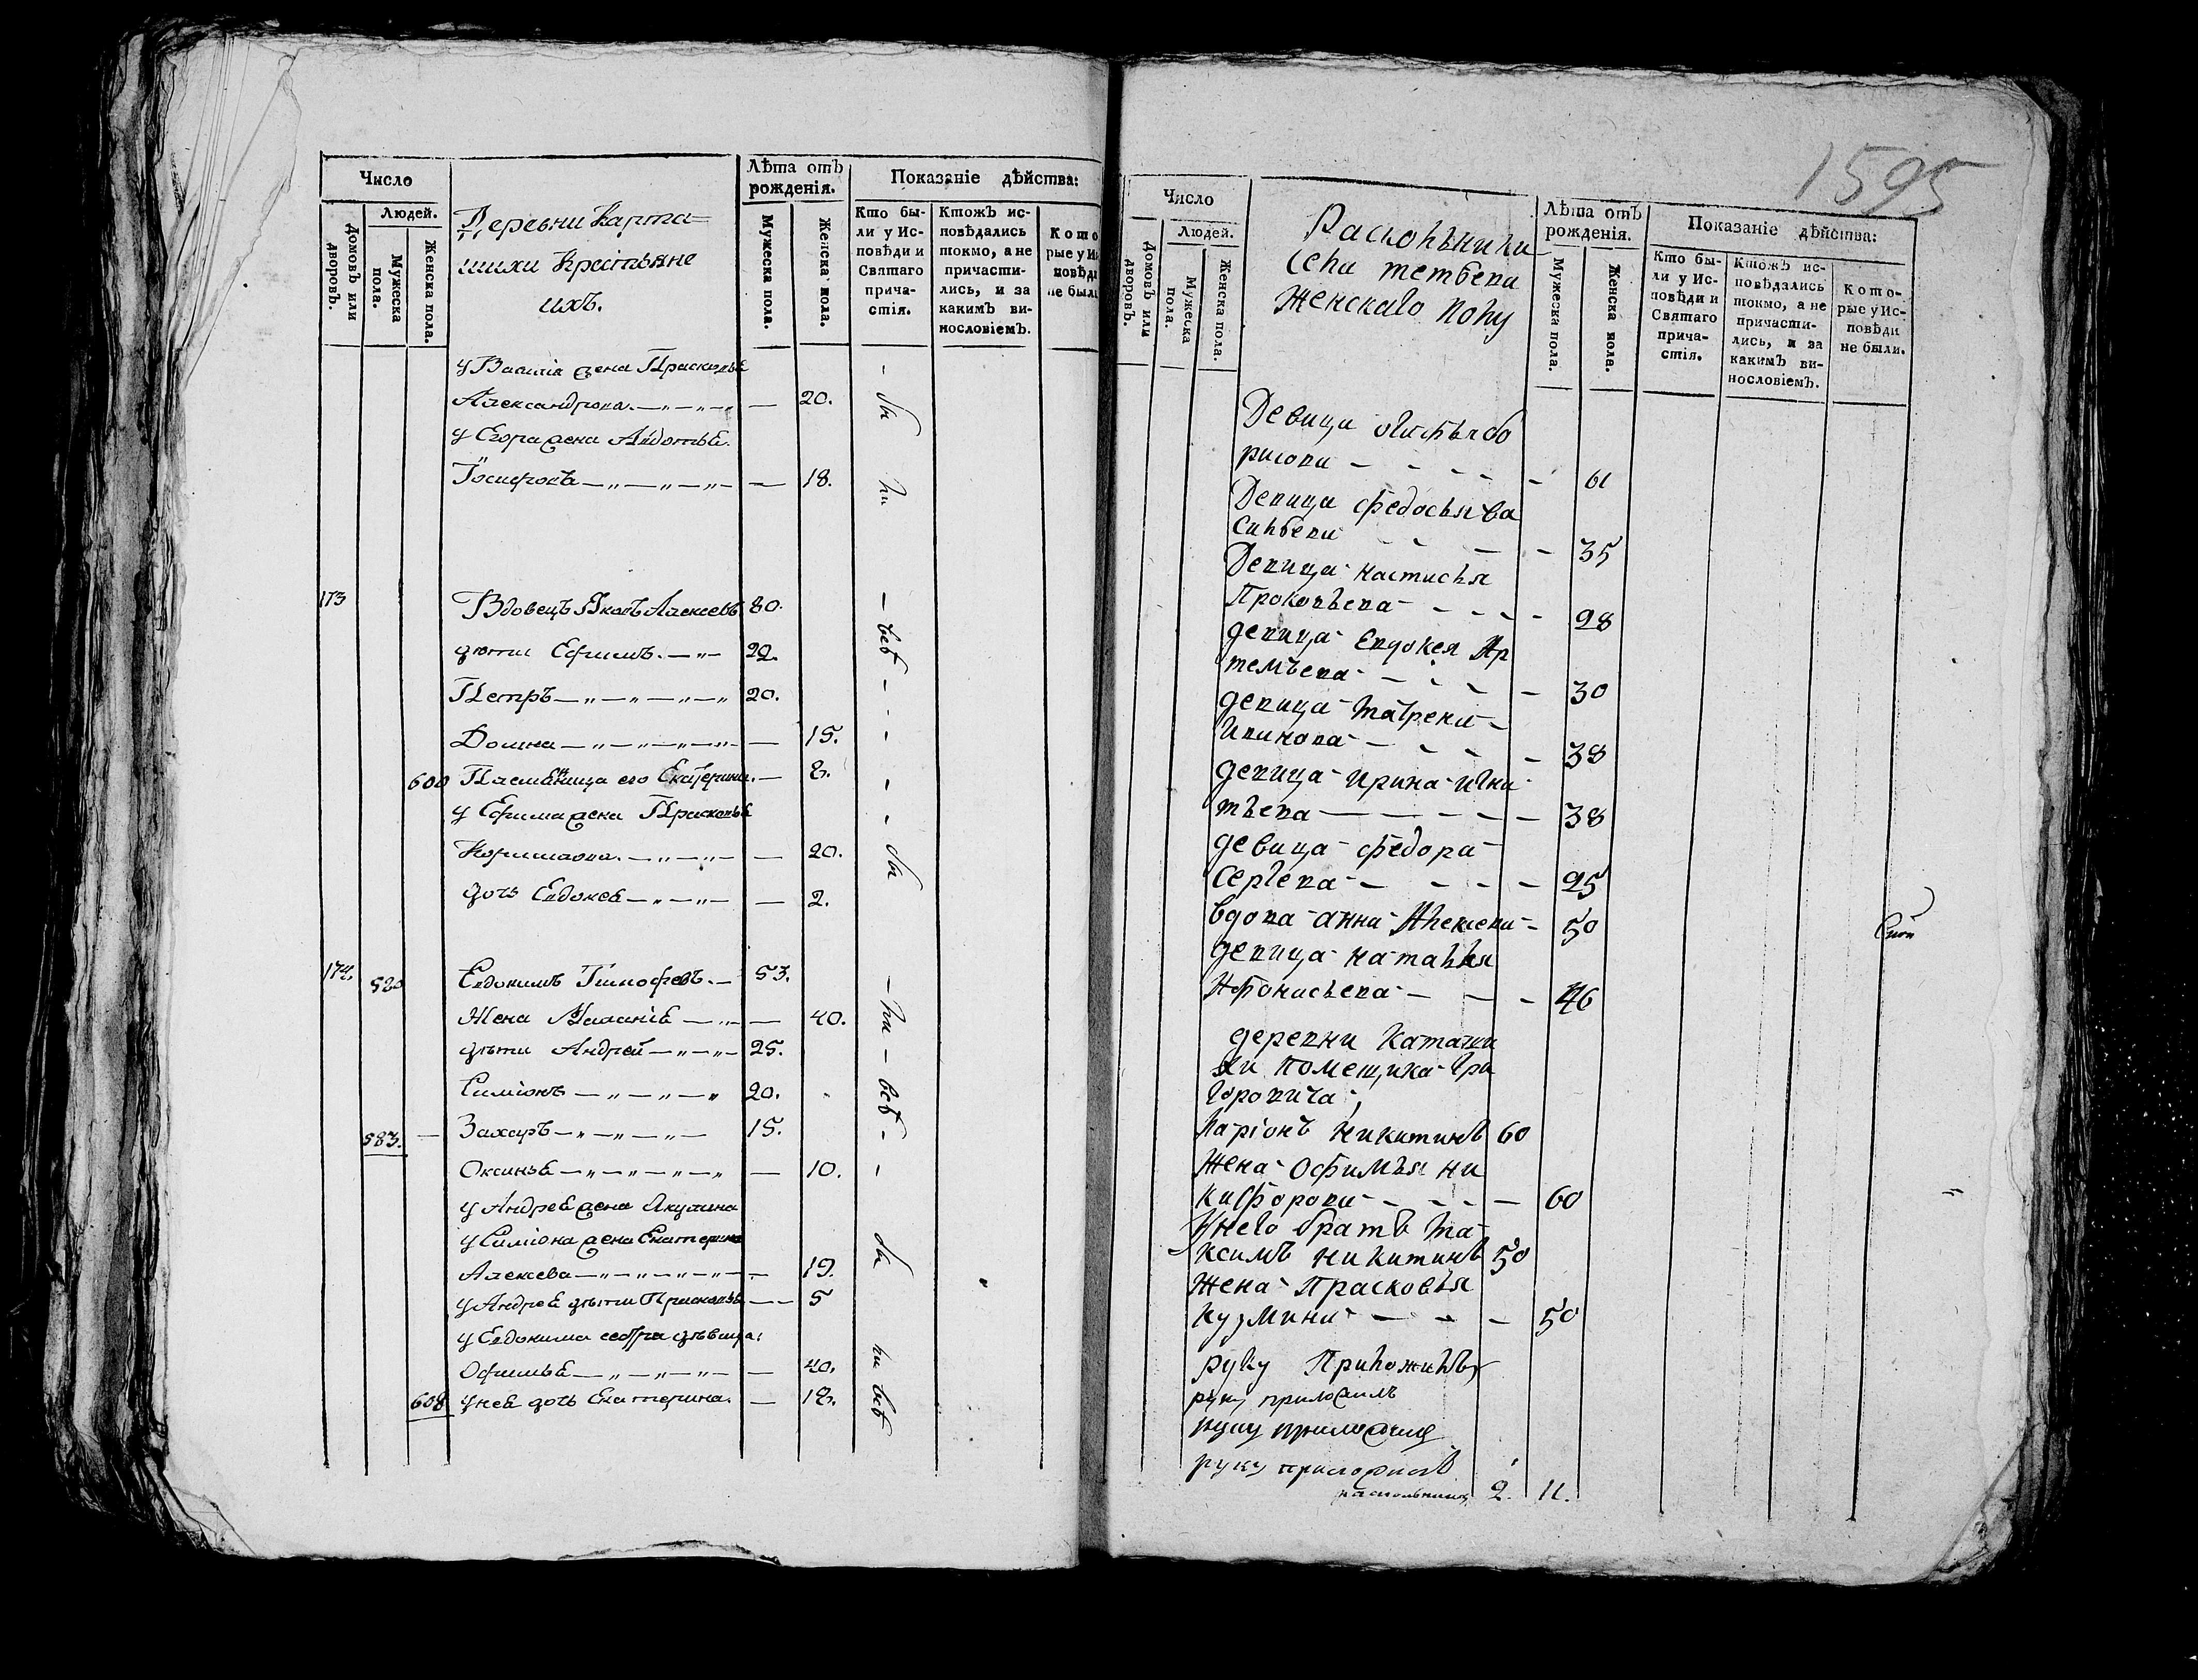 Число
Людей.
Домовъ или дворовъ.
Мужеска пола.
Женска пола.
Деревни Карта=
шихи Крестьяне
ихъ.
Лѣта отъ рожденія.
Мужеска пола.
Женска пола.
Показаніе дѣйства:
Кто бы-
ли у Ис-
повѣди и
Святаго
прича-
стія.
Ктожъ ис-
повѣдались
токмо, а не
причасти-
лись, и за
какимъ ви-
нословіемъ.
Кото
рые у И
повѣд
не был
у Василiя жена Прасковья
Александрова 20.
у Егора жена Авдотья
Іосифова 18.
173 Вдовецъ Яковъ Алексеевъ 80.
дѣти Ефимъ. 22.
Петръ 20.
Домна 15.
600 Племяница его Екатерина. 8.
у Ефима жена Прасковья
20.
дочь Евдокея 2.
174. 520 Евдокимъ Тимофеевъ. 53.
Жена Маланія 40.
дѣти Андрей 25.
Симіонъ 20.
583. Захаръ 15.
Оксинья 10.
у Андрея жена Акулина
у Симіона жена Екатерина
Алексева 19.
у Андрея дѣти Прасковья 5
у Евдокима сестра дѣвица:
Офимья 40.
608 у нея дочь Екатерина. 18.
1595
Число
Людей.
Домовъ или дворовъ.
Мужеска пола.
Женска пола.
Раскольники
села
женскаго полу
Лѣта отъ рожденія.
Мужеска пола.
Женска пола.
Показаніе дѣйства:
Кто бы-
ли у Ис-
повѣди и
Святаго
прича-
стія.
Ктожъ ис-
повѣдались
токмо, а не
причасти-
лись, и за
какимъ ви-
нословіемъ.
Кото-
рые у Ис-
повѣди
не были.
Девица бо
рисова 61
Девица федосья ва
сильева 35
Девица настасья
Прокопьева 28
девица Евдокея Ар
темъева 30
девица Матрена
Иванова 38
девица ирина игна
тъева 38
девица федора
Сергева 25
вдова анна Алексева 50
девица наталья
Афонасьева 46
деревни
хи помещика Гри
горовича
Ларіонъ Никитинъ 60
Жена Офимъя ни
кифорова 60
У него братъ Ма
ксимъ никитинъ 50
Жена Прасковья
кузмина 50
руку Приложилъ
руку приложилъ
руку приложилъ
руку приложилъ
раскольницъ 2. 11.